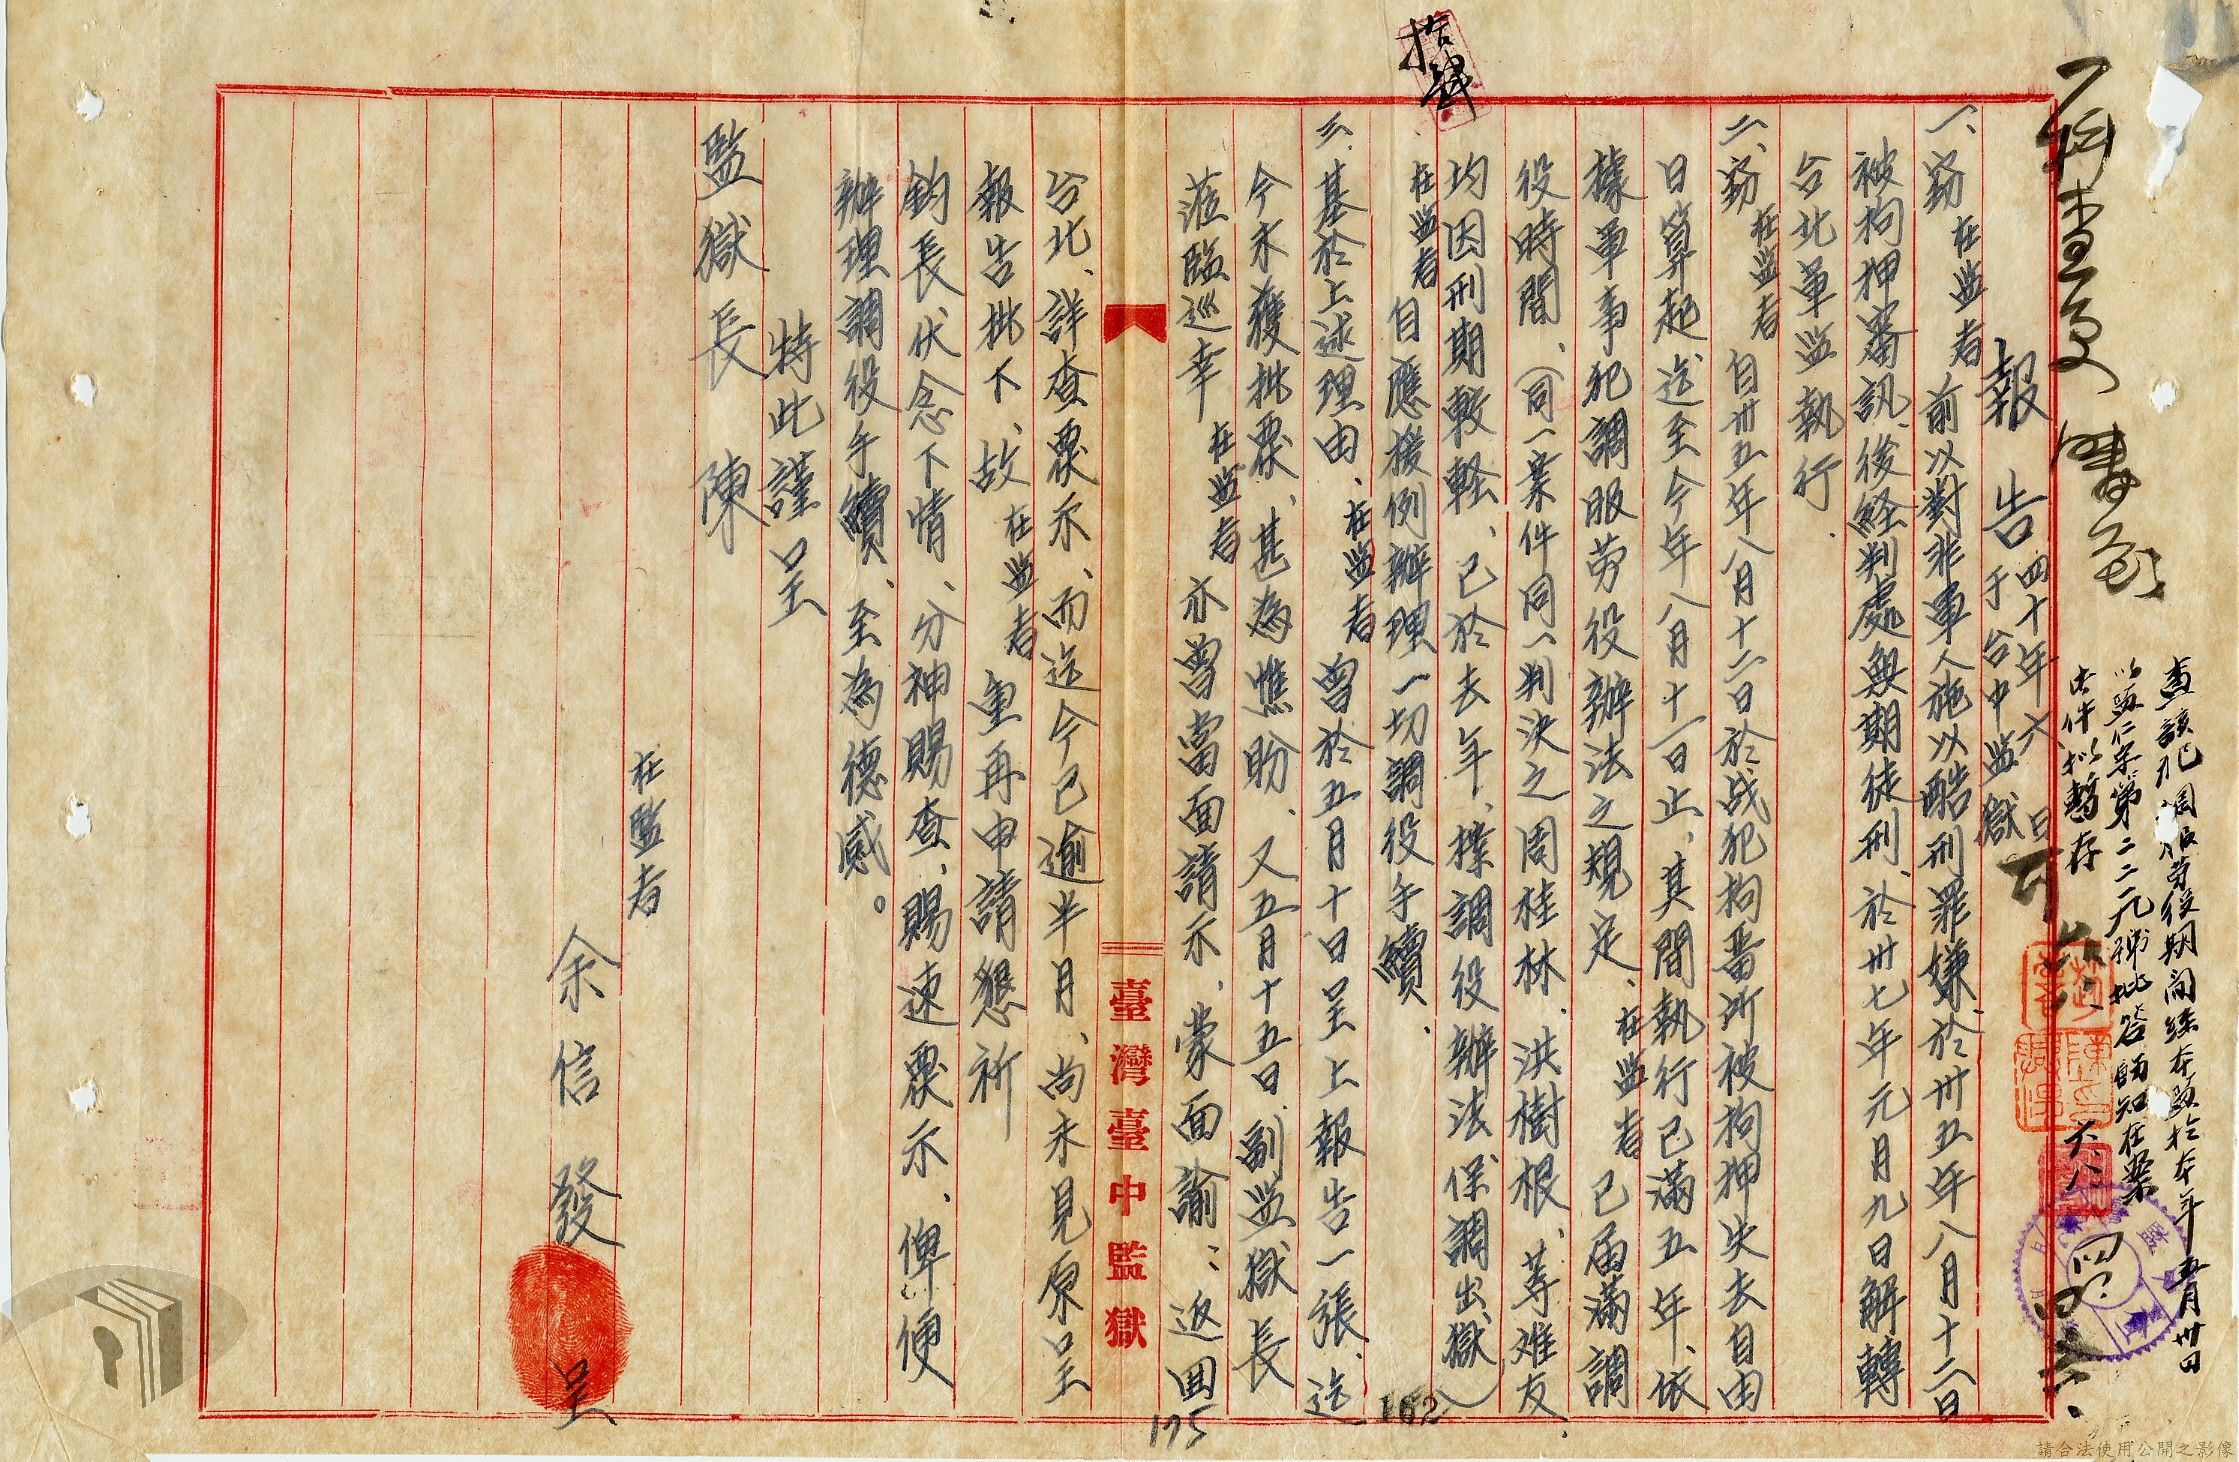 報告 四十年六 日
于台中监獄
一、竊在监者前以對非軍人施以酷刑罪嫌、於卅五年八月十二日
被拘押審訊、後経判處無期徒刑、於卅七年元月九日解轉
台北軍监執行.
二、竊在监者自卅五年八月十二日於战犯拘畱所被拘押失去自由
日算起迄至今年八月十一日止、其間執行已滿五年、依
據軍事犯調服劳役辦法之規定、在监者已届滿調
役時間、(同一案件同一判決之周桂林、洪樹根、等难友、
均因刑期較軽、已於去年、據調役辦法保調出獄)
在监者自應援例辦理一切調役手續.
三、基於上述理由、在监者曾於五月十日呈上報告一張、迄
今未獲批覆、甚為憔盼、又五月十五日、副监獄長
蒞臨巡幸在监者亦曾當面請示、蒙面諭:返囬
台北、詳查覆示、而迄今已逾半月、尚未見原呈
報告批下、故在监者重再申請懇祈
鈞長伏念下情、分神賜查、賜速覆示、俾便
辦理調役手續、至為德感。
特此謹呈
監獄長 陳
在監者
余信發 呈
臺灣臺中監獄
查該犯調服劳役期间経本监於本年五月卅日
以监仁字第二二一九號批答飭知在案
本件拟暫存
六、八
175
162
請合法使用公開之影像